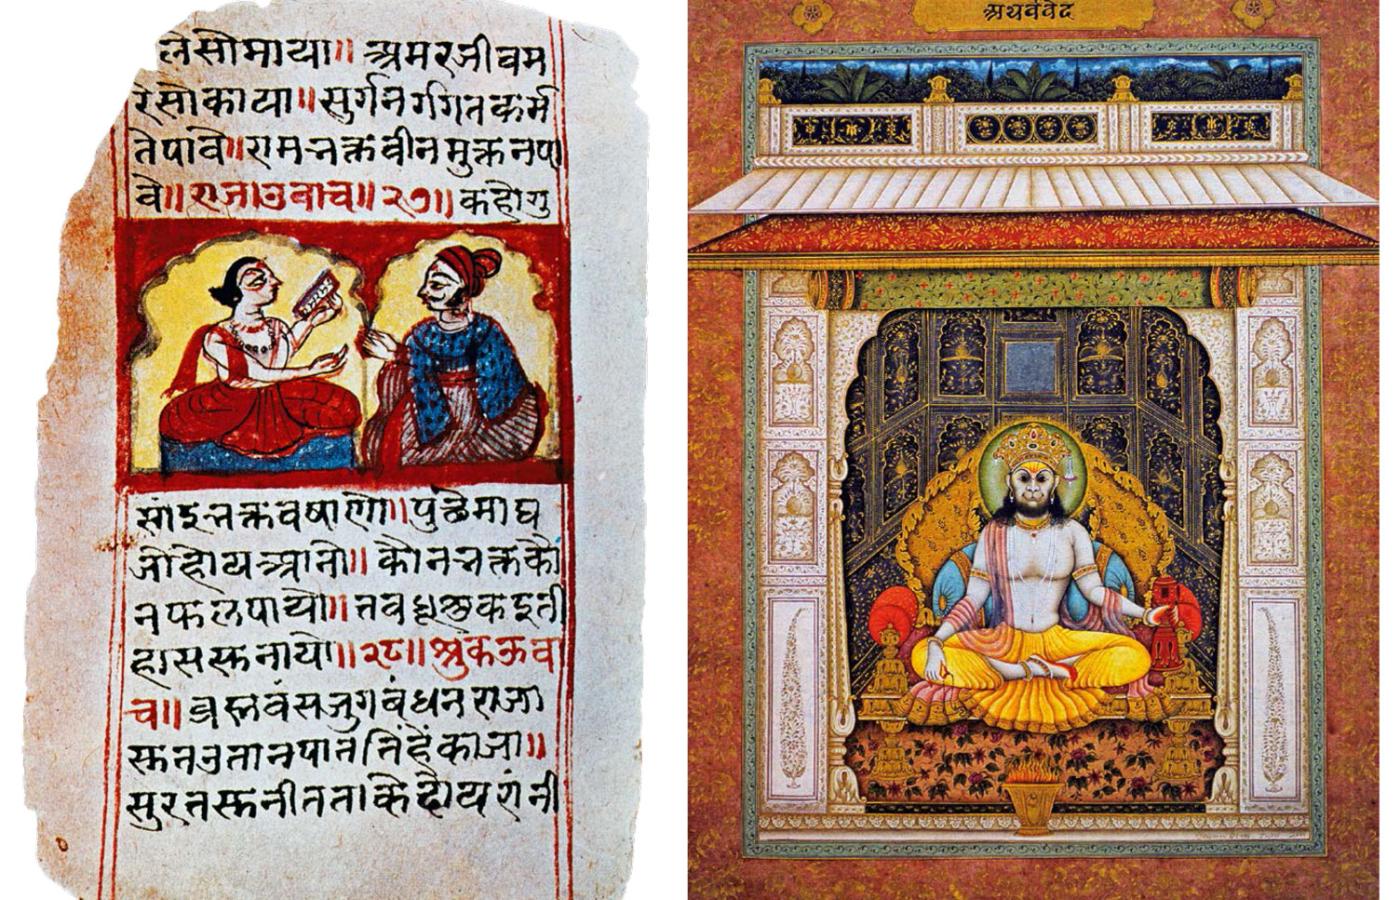 लेसोमाया॥ अमरजीवम
रेसोकाया॥ सुर्गनर्गगितकर्म
तेपावे॥ रामनक्तवीनमुक्तनपा
वे॥ राजाउवाच॥ २७॥ कहौगु
सांइनक्तवषाणो॥ पुछेमाघ
जीहोय
कौनन्नक्तकौ
नफलपायौ॥ तवधूक्तकइती
हासस्कनायो॥ २८॥ श्रुकऊवा
च॥ व्रह्मवंसजुगबंधनराजा
स्कनउतानपाततिंहेकाजा॥
सुरतस्कनीतताकेदोयरांनी
अथर्ववेद